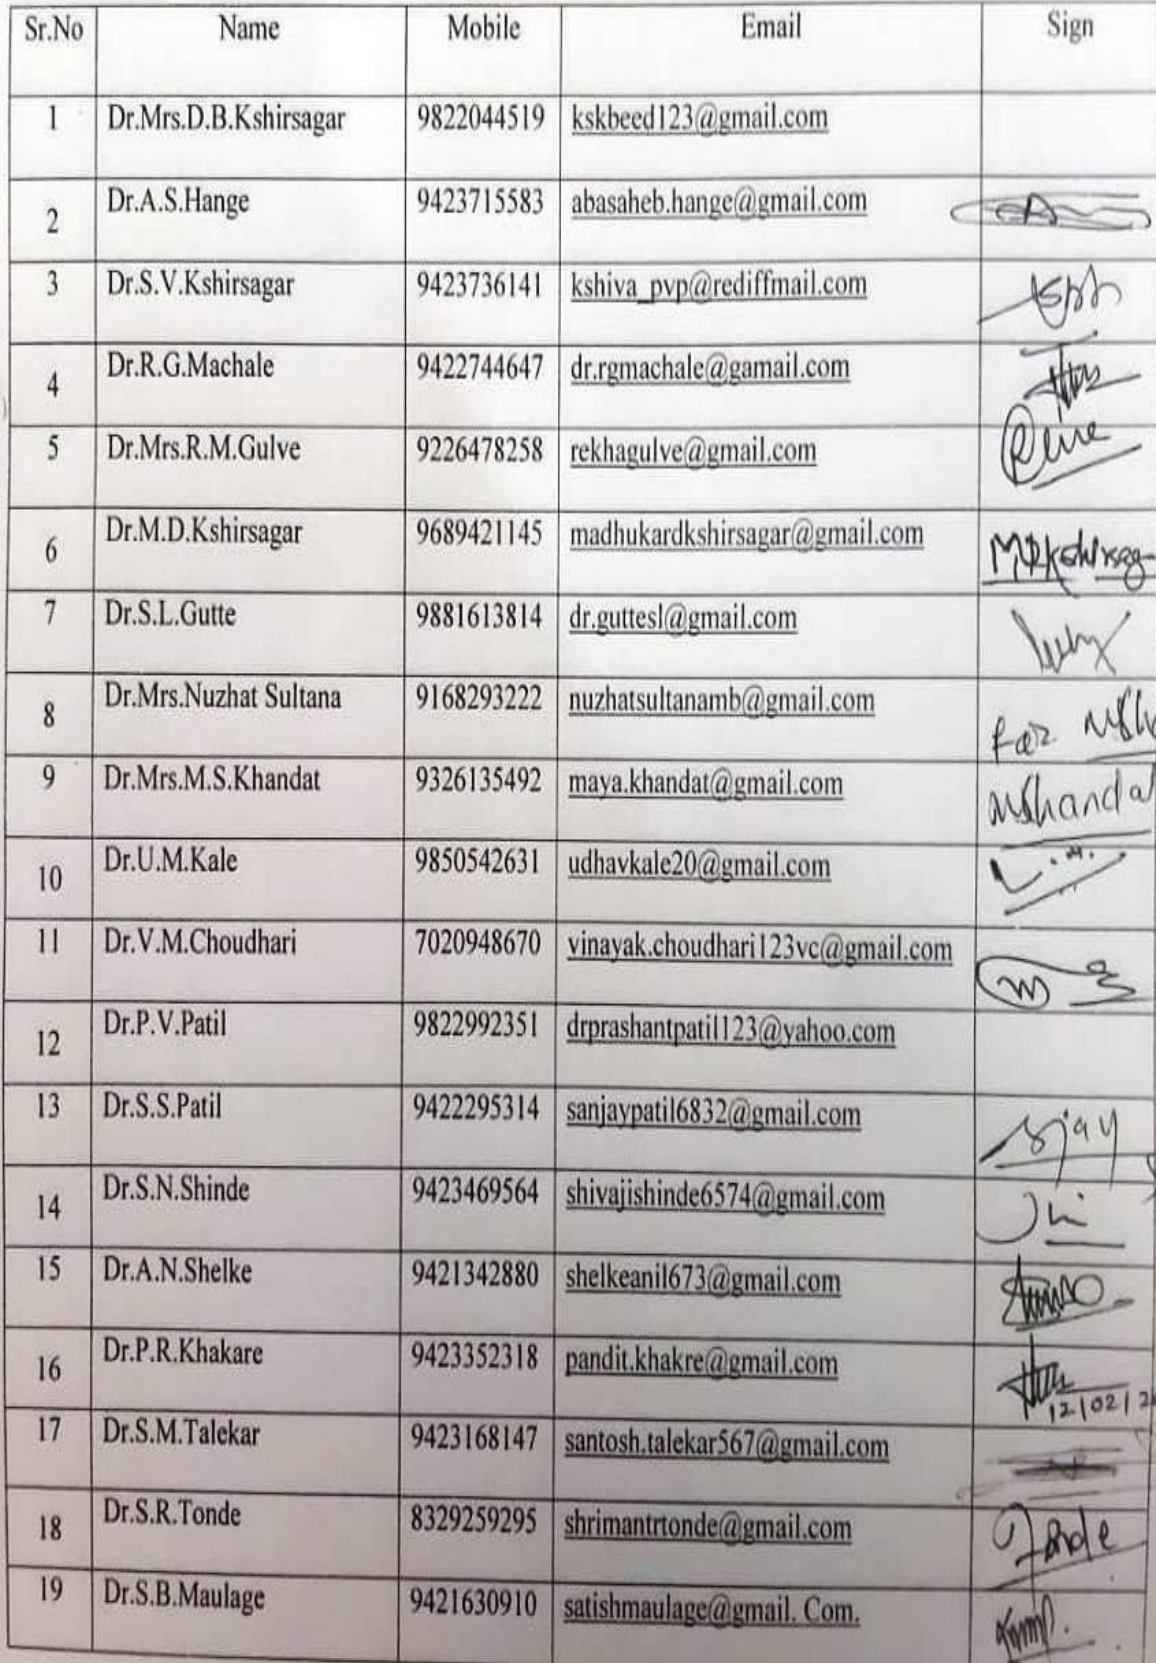 Sr.No Name Mobile Email Sign
1 Dr.Mrs.D.B.Kshirsagar 9822044519 kskbeed123@gmail.com
2 Dr.A.S.Hange 9423715583 abasaheb.hange@gmail.com
3 Dr.S.V.Kshirsagar 9423736141 kshiva_pvp@rediffmail.com
4 Dr.R.G.Machale 9422744647 dr.rgmachale@gamail.com
5 Dr.Mrs.R.M.Gulve 9226478258 rekhagulve@gmail.com
6 Dr.M.D.Kshirsagar 9689421145 madhukardkshirsagar@gmail.com
7 Dr.S.L.Gutte 9881613814 dr.guttesl@gmail.com
8 Dr.Mrs.Nuzhat Sultana 9168293222 nuzhatsultanamb@gmail.com
9 Dr.Mrs.M.S.Khandat 9326135492 maya.khandat@gmail.com
10 Dr.U.M.Kale 9850542631 udhavkale20@gmail.com
11 Dr.V.M.Choudhari 7020948670 vinayak.choudhari123vc@gmail.com
12 Dr.P.V.Patil 9822992351 drprashantpatil123@yahoo.com
13 Dr.S.S.Patil 9422295314 sanjaypatil6832@gmail.com
14 Dr.S.N.Shinde 9423469564 shivajishinde6574@gmail.com
15 Dr.A.N.Shelke 9421342880 shelkeanil673@gmail.com
16 Dr.P.R.Khakare 9423352318 pandit.khakre@gmail.com
12/02/2
17 Dr.S.M.Talekar 9423168147 santosh.talekar567@gmail.com
18 Dr.S.R.Tonde 8329259295 shrimantrtonde@gmail.com
19 Dr.S.B.Maulage 9421630910 satishmaulage@gmail. Com.